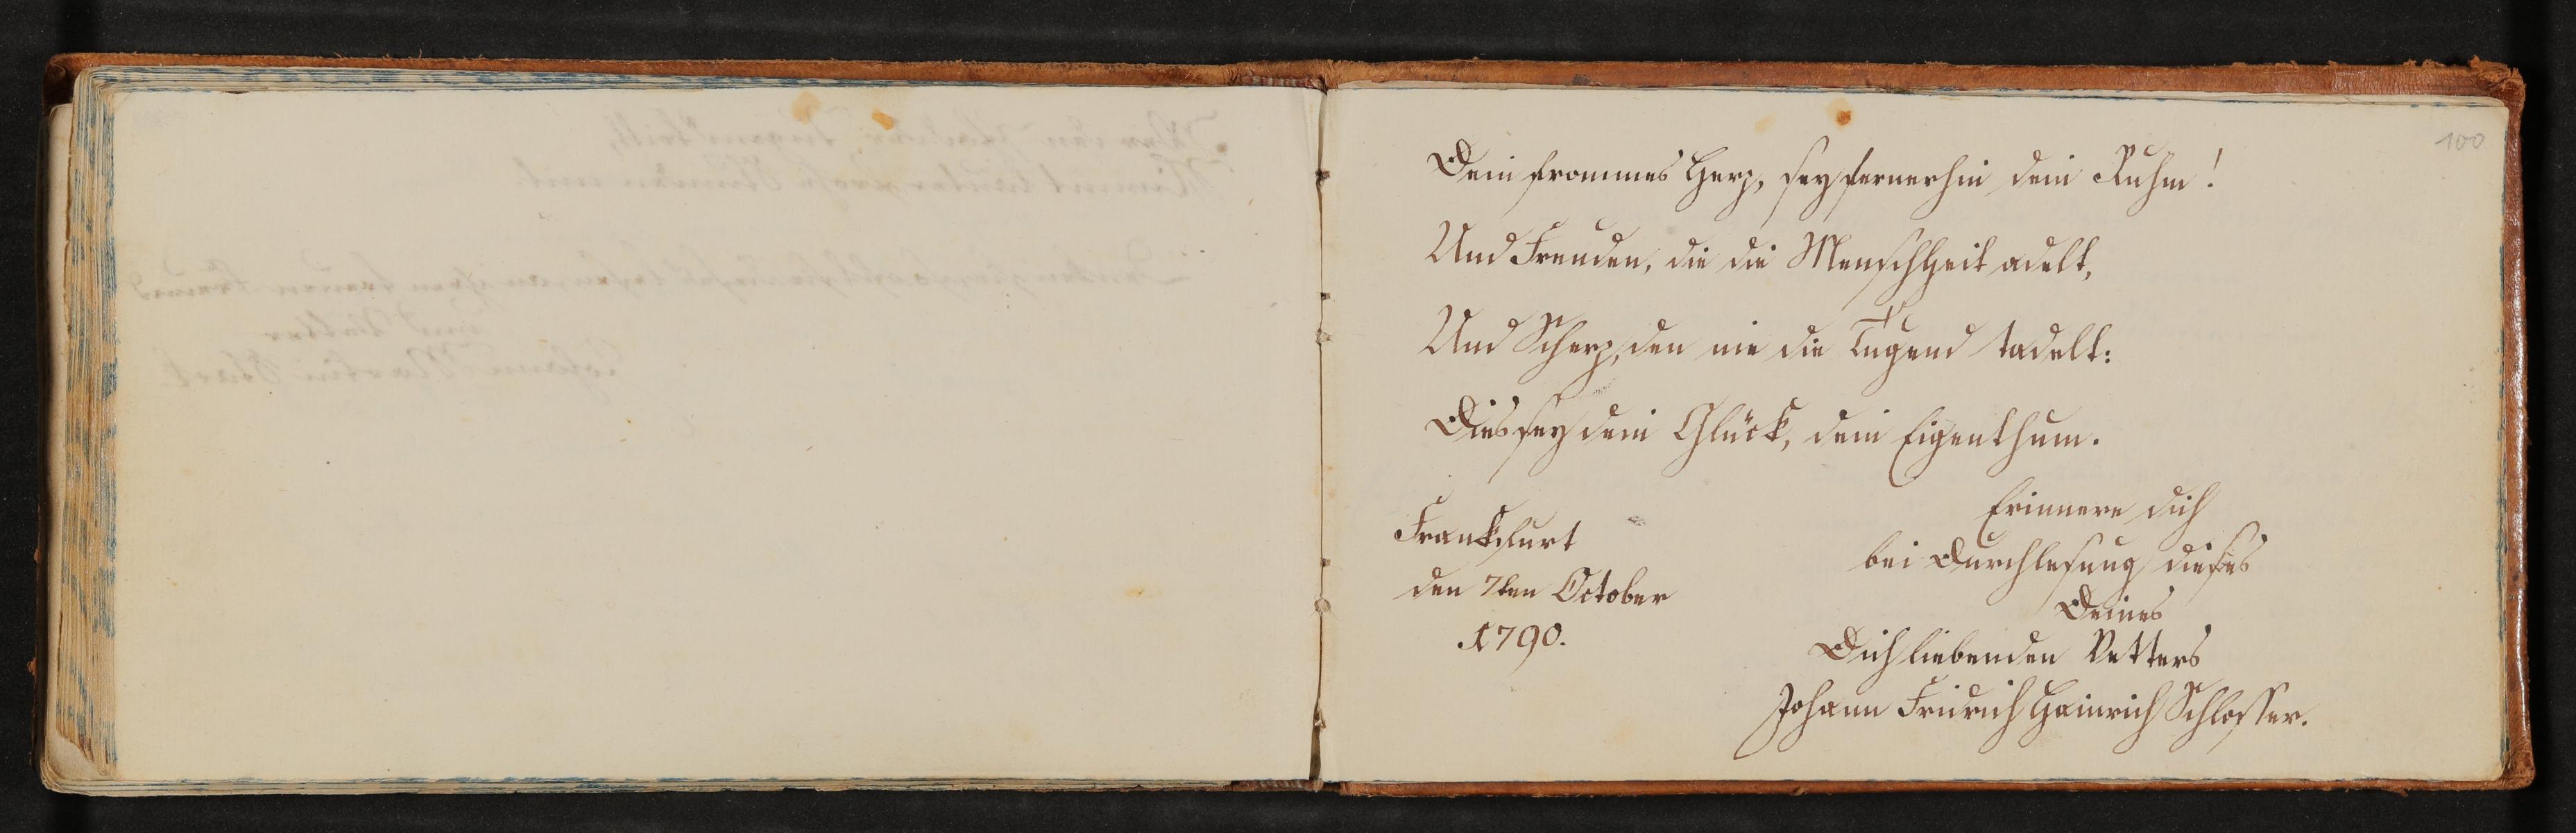 100
Dein frommes Herz, sey fernerhin dein Ruhm!
Und Freuden, die die Menschheit adelt,
Und Scherz, den nie die Tugend tadelt:
Dies sey dein Glück, dein Eigenthum.
Frankfurt
den 7ten October
1790.
Erinnere dich
bei Durchlesung dieses
Deines
Dich liebenden Vetters
Johann Fridrich Heinrich Schlosser.